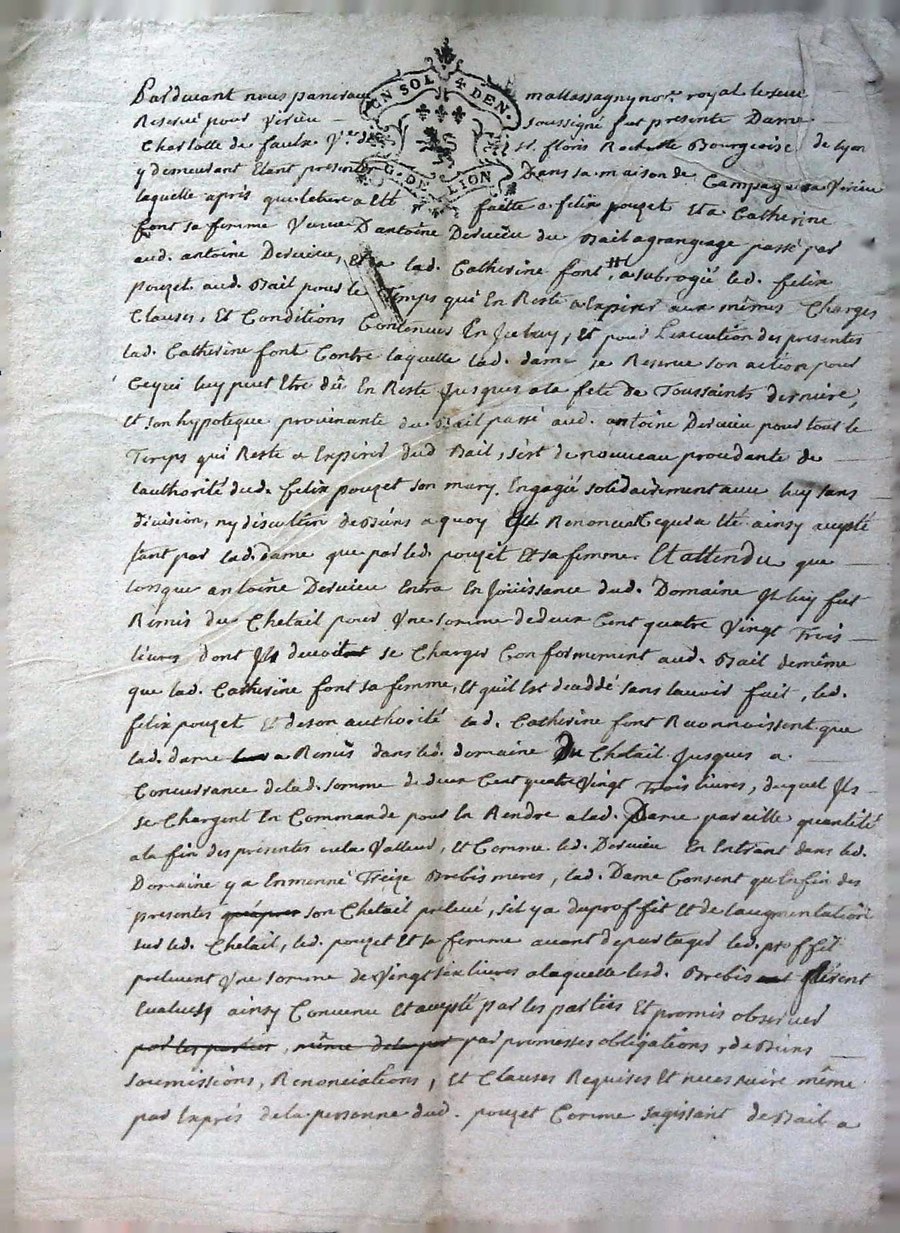 UN SOL 4 DEN.
G. DE LION
Pardevant nous notre royal
Reservé pour Virieu soussigné fut presente Dame
Charlotte de faulx Ve. de Sr. floris Rochette Bourgeoise de lyon
y demeurant Etant presente Dans sa maison de Campagne a Virieu
laquelle après que lecture a Eté faitte a felix pouzet Et a Catherine
font sa femme Veuve D'antoine Dervieu du Bail a grangeage passé par
aud. antoine Dervieu, Et a lad. Catherine font # a subrogé led. felix
pouzet aud. Bail pour le Temps qui En Reste a Expirer aux mêmes Charges
Clauses, Et Conditions Contenues En Iceluy, Et pour L'execution des presentes
lad. Catherine font Contre laquelle lad. dame se Reserve son action pour
Ce qui luy peut Etre dû En Reste Jusques a la fete de Toussaints derniere,
Et son hypoteque provenante du Bail passé aud. antoine Dervieu pour tout le
Temps qui Reste a Expirer dud Bail, s'est de nouveau procedante de
l'authorité dud. felix pouzet son mary, Engagée solidairement avec luy sans
division, ny discution de Biens a quoy Ils Renoncent Ce qui a Eté ainsy accepté
tant par lad. dame que par led. pouzet Et sa femme. Et attendu que
lorsque antoine Dervieu Entra En Joüissance dud. Domaine Il luy fut
Remis du Chetail pour Une somme de deux Cent quatre Vingt Trois
livres dont Il devoit se Charger Conformement aud. Bail de même
que lad. Catherine font sa femme, Et qu'il Est decedé sans l'avoir fait, led.
felix pouzet Et de son authorité lad. Catherine font Reconnoissent que
lad. dame a Remis dans led. domaine Du Chetail Jusques a
Concurrance de lad. somme de deux Cent quatre Vingt Trois livres, duquel Ils
se Chargent En Commande pour la Rendre a lad. Dame pareille quantité
a la fin des presentes ou la Valleur, Et Comme led. Dervieu En Entrant dans led.
Domaine y a Enmenné Treize Brebis meres, lad. Dame Consent qu'En fin des
presentes son Chetail prelevé, s'il y a du proffit Et de l'augmentation
sur led. Chetail, led. pouzet Et sa femme avant de partager led. proffit
prelevent Une somme de Vingt six livres a laquelle lesd. Brebis furent
Evaluées ainsy Convenu Et accepté par les parties Et promis observer
par les parties, même de la par par promesses obligations, de Biens
soumissions, Renonciations, Et Clauses Requises Et necessaire même
par Exprès de la personne dud. pouzet Comme s'agissant de Bail a